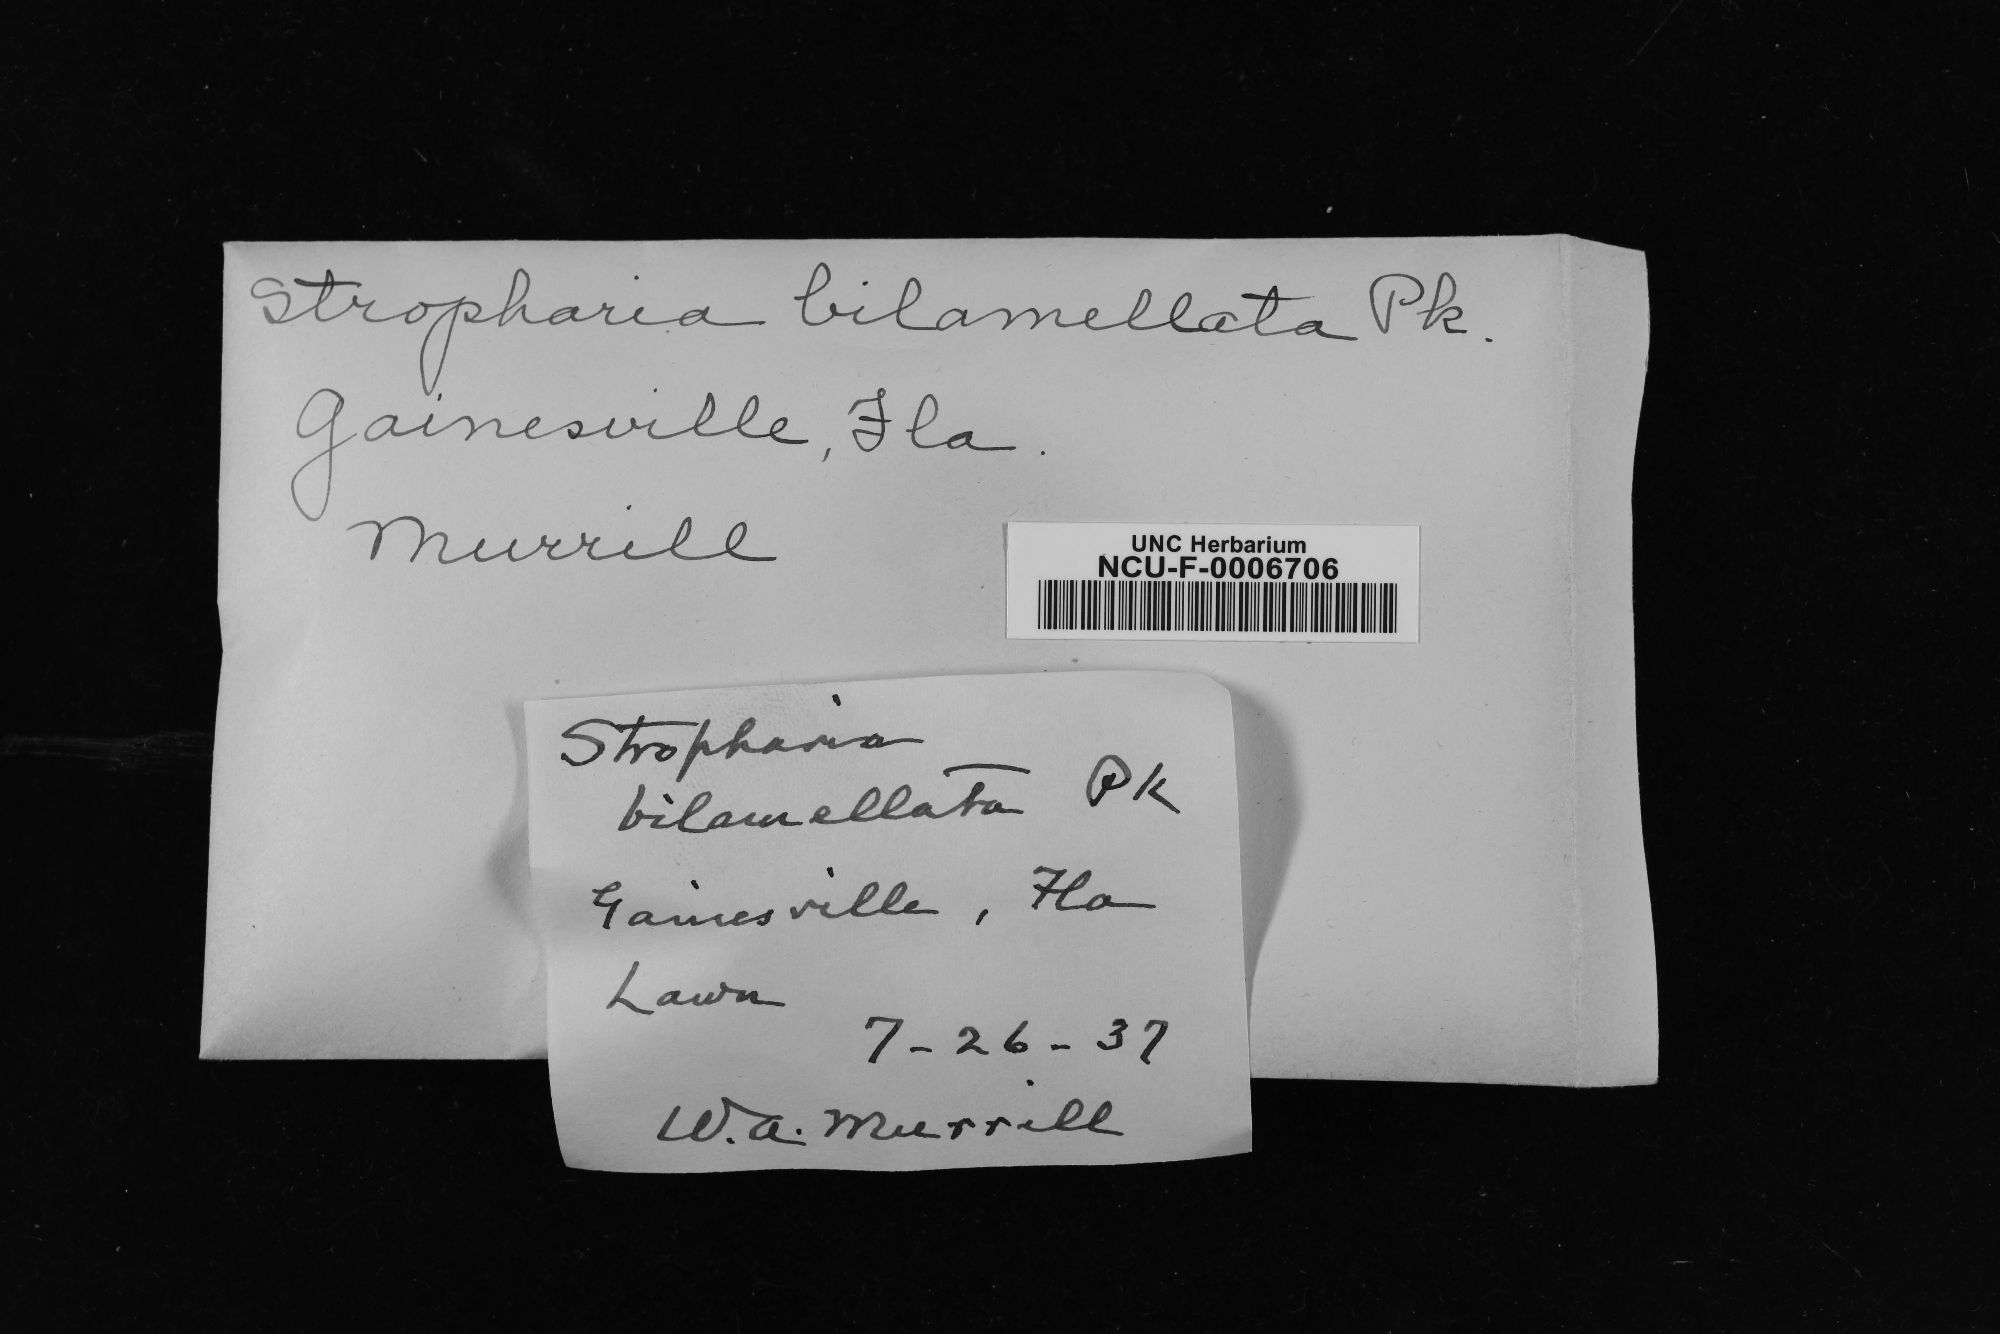 Stropharia bilamellata Pk.
Gainesville, Fla.
Murrill
UNC Herbarium
NCU-F-0006706
Stropharia
bilamellata Pk
Gainesville, Fla
Lawn
7-26-37
W.A. Murrill